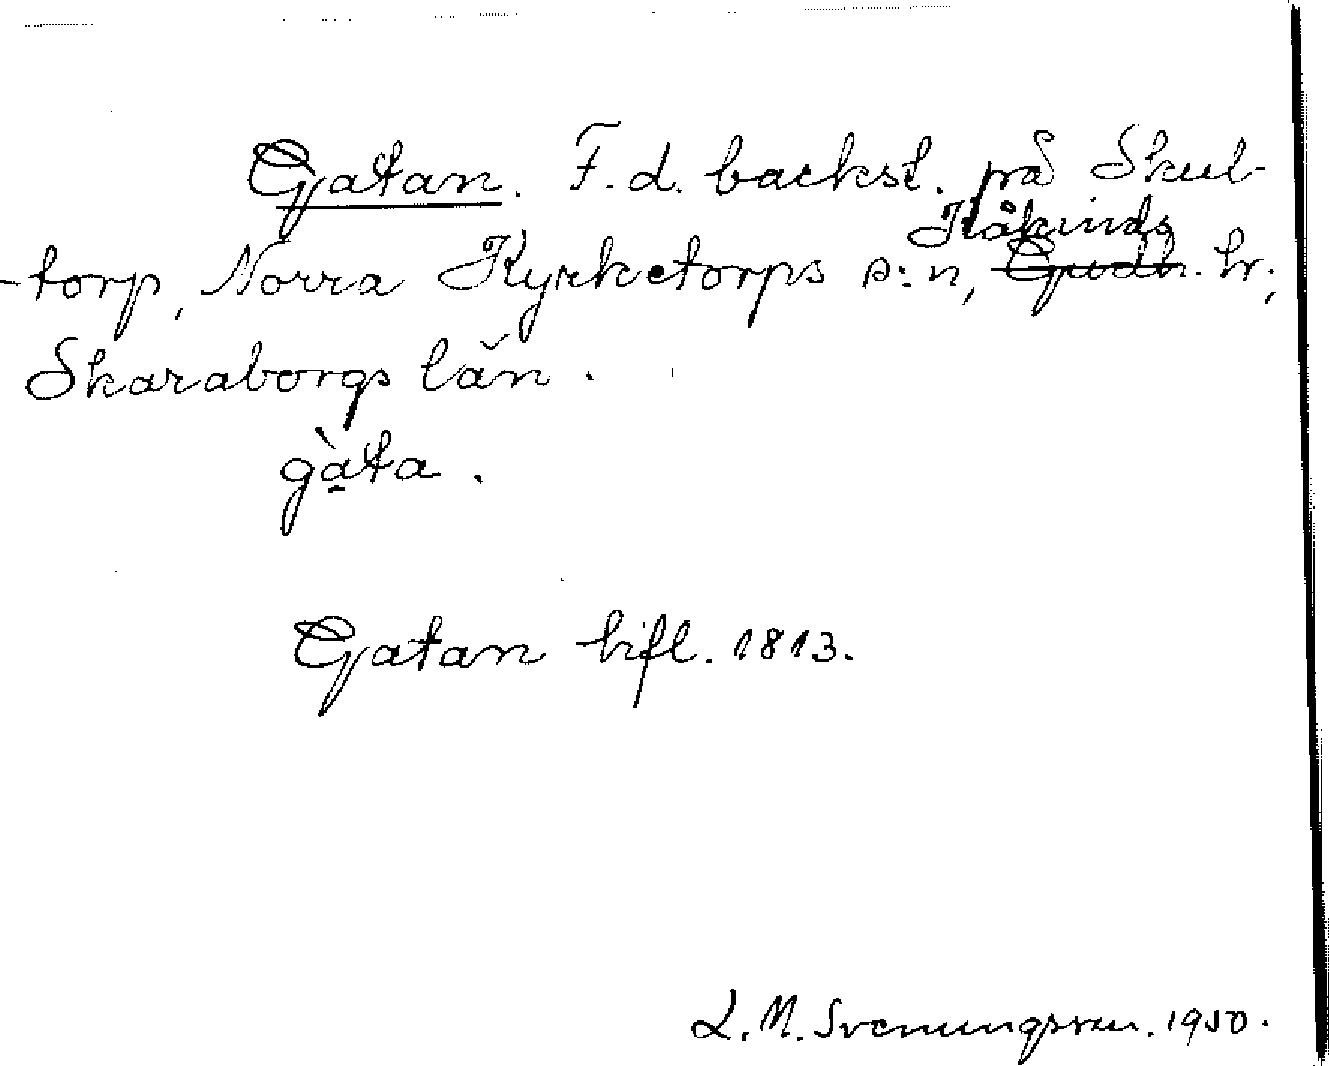 Gatan. F. d. backst. på Skul-
-torp, Norra Kyrketorps s:n, Kåkinds Gudh. hr,
Skaraborgs län.
gàta.
Gatan hifl. 1813.
L. M. Svenungsson. 1950.